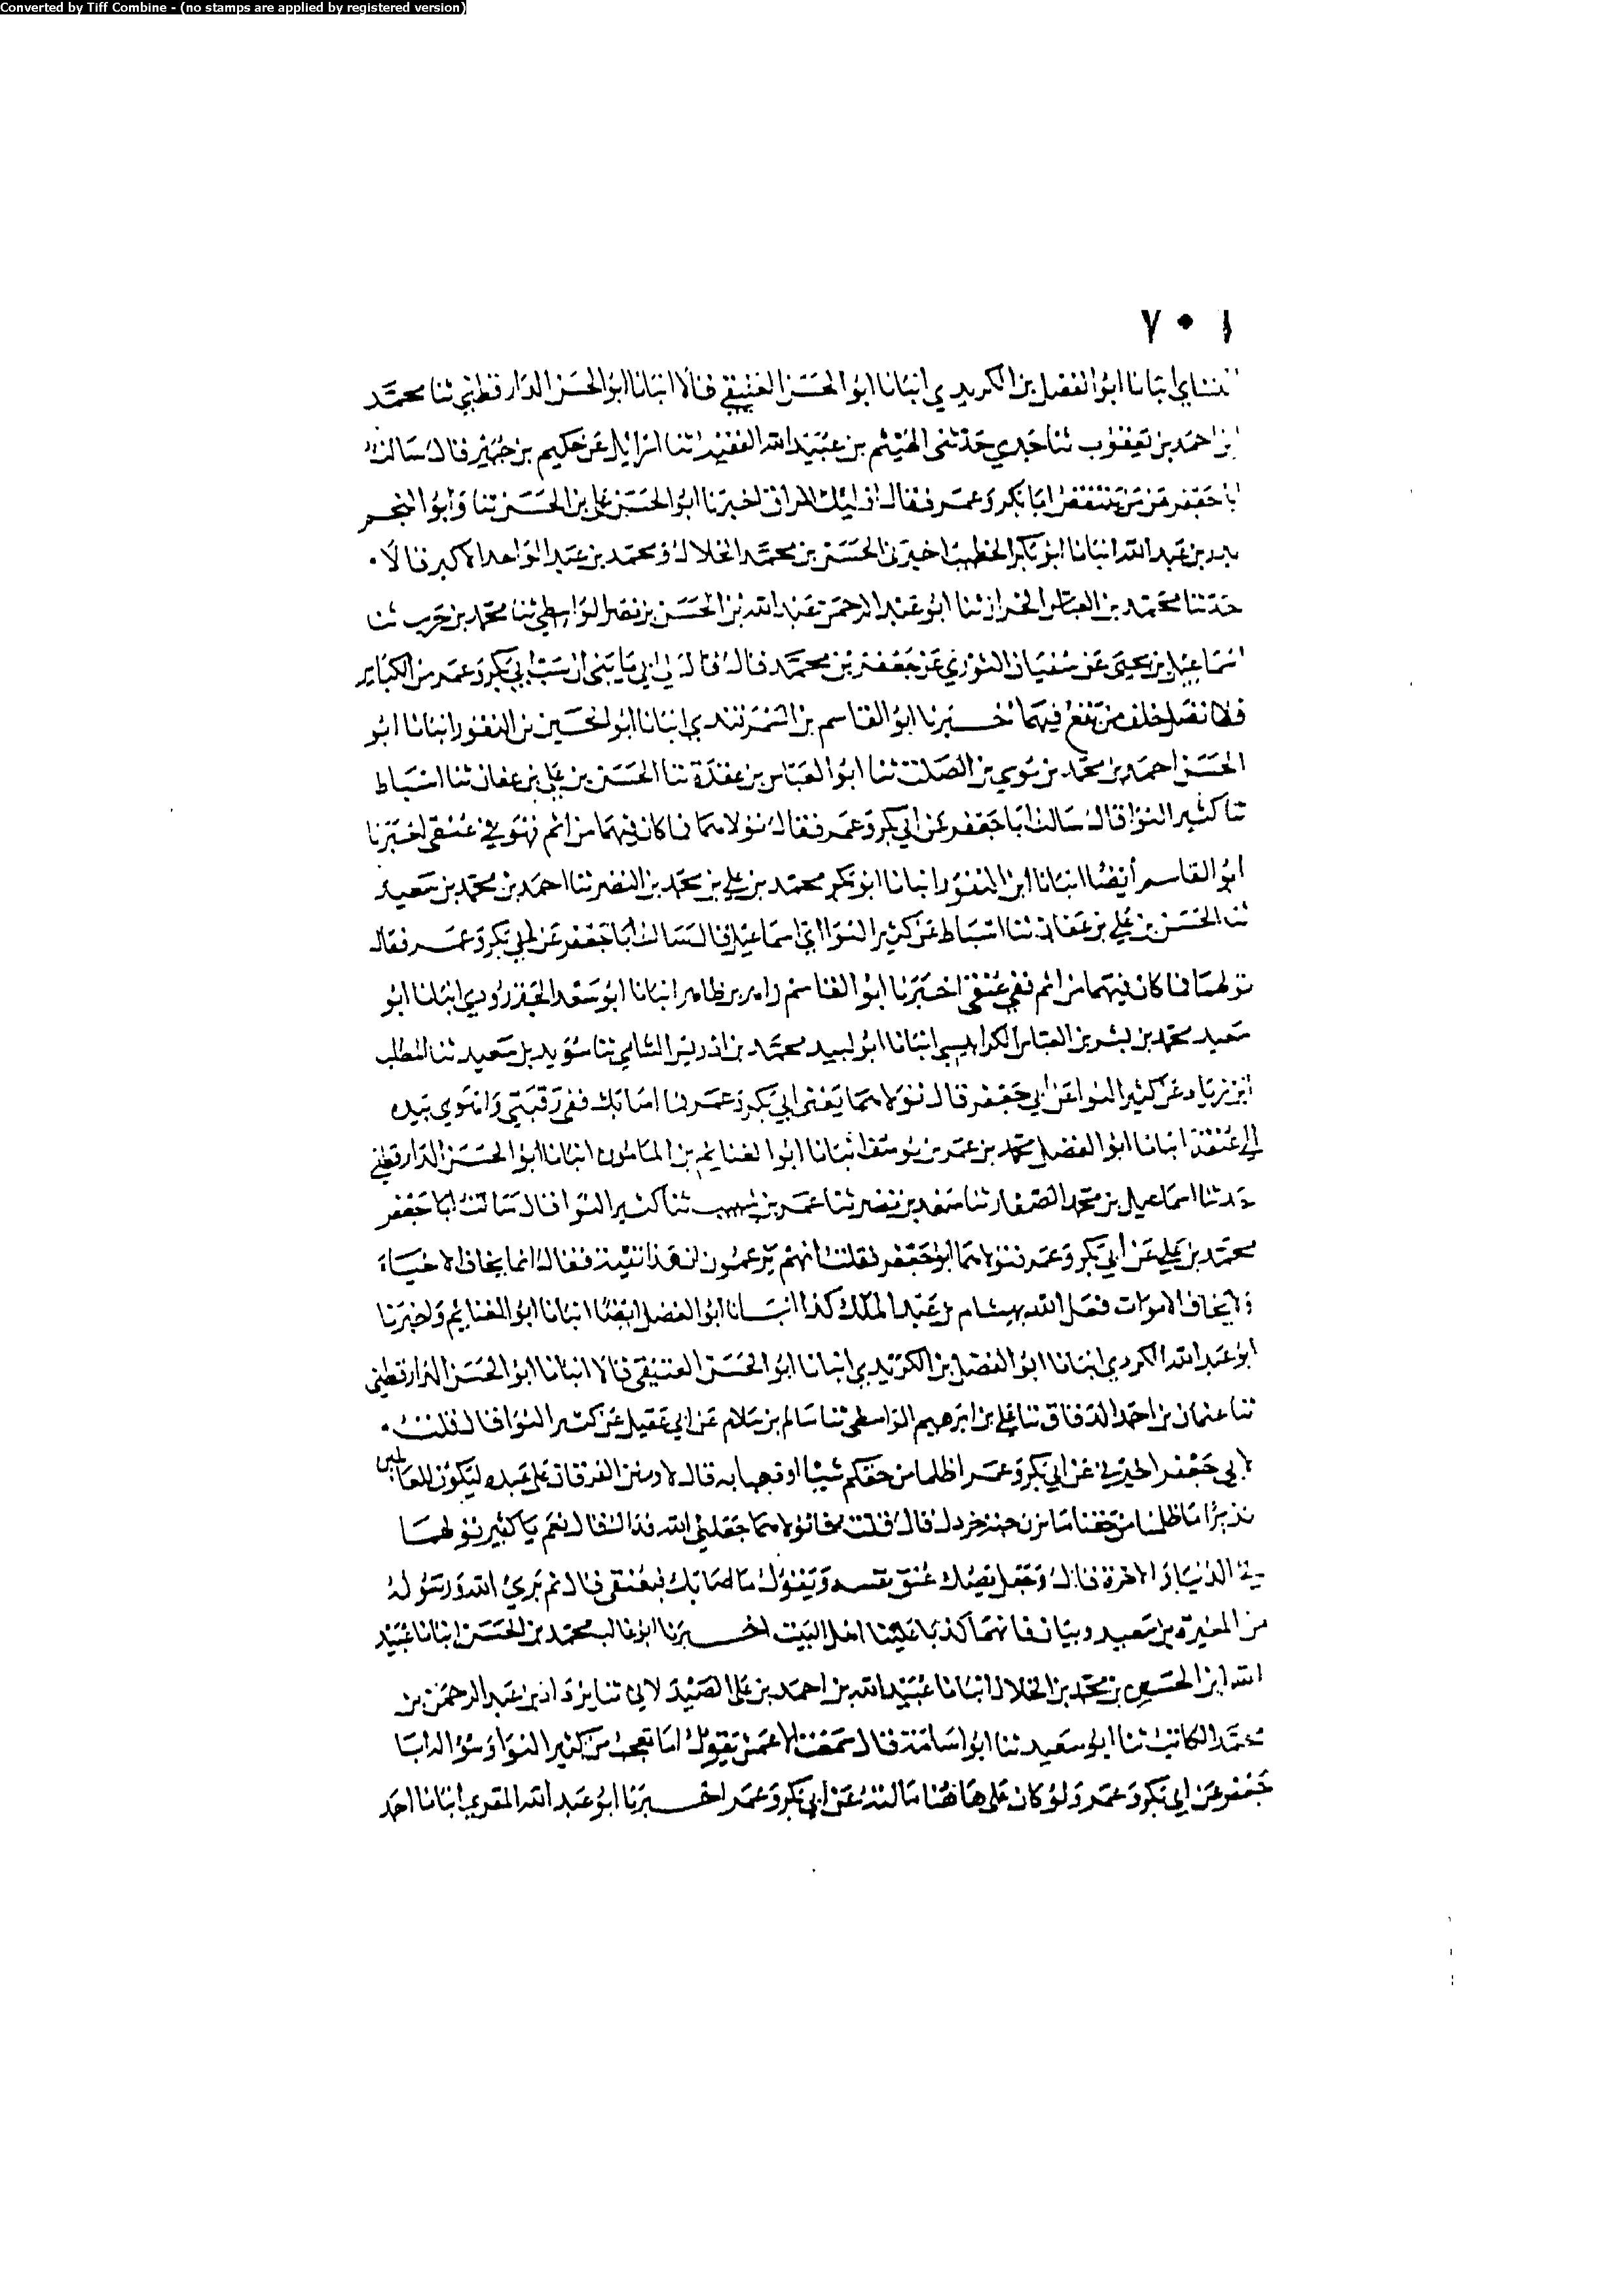 Converted by Tiff Combine - (no stamps are applied by registered version)
٧٠١
انبانا ابو الفضل بن الكريدي انبانا ابو الحسن العتيقي قالا انبانا ابو الحسن الدارقطني ثنا محمد
بن احمد بن يعقوب ثنا جدي حدثنى الهيثم بن عبيد الله الفقيه ثنا اسرائيل عن حكيم بن جبير قال سالت
ابا جعفر عن من ينتقص ابا بكر وعمر فقال اوليك المراق اخبرنا ابو الحسن علي بن الحسن ثنا وابو النجم
بدر بن عبد الله انبانا ابو بكر الخطيب اخبرنى الحسن بن محمد الخلال ومحمد بن عبد الواحد الاكبر قالا
حدثنا محمد بن العباس الخراز ثنا ابو عبد الرحمن عبد الله بن الحسن بن نصر الواسطي ثنا محمد بن حرب ثنا
اسماعيل بن يحيى عن سفيان الثوري عن جعفر بن محمد قال قال لي ابي يا بني ان سب ابي بكر وعمر من الكباير
فلا تصل خلف من يقع فيهما اخبرنا ابو القاسم بن السمرقندي انبانا ابو الحسين بن النقور انبانا ابو
الحسن احمد بن محمد بن موسي بن الصلت ثنا ابو العباس بن عقدة ثنا الحسن بن علي بن عفان ثنا اسباط
ثنا كثير النوا قال سالت ابا جعفر عن ابي بكر وعمر فقال تولاهما فما كان فيهما من اثم فهو في عنقي اخبرنا
ابو القاسم أيضا انبانا ابن النقور انبانا ابو بكر محمد بن علي بن محمد بن النضر ثنا احمد بن محمد بن سعيد
ثنا الحسن بن علي بن عفان ثنا اسباط عن كثير النوا ابي اسماعيل قال سالت ابا جعفر عن ابي بكر وعمر فقال
تولهما فما كان فيهما من اثم ففي عنقي اخبرنا ابو القاسم زاهر بن طاهر انبانا ابو سعد الجنزرودي انبانا ابو
سعيد محمد بن بشر بن العباس الكرابيسي انبانا ابو لبيد محمد بن ادريس الشامي ثنا سويد بن سعيد ثنا المطلب
ابن زياد عن كثير النوا عن ابي جعفر قال تولاهما يعني ابي بكر وعمر فما اصابك ففي رقبتي واهوى بيده
الي عنقه انبانا ابو الفضل محمد بن عمر بن يوسف انبانا ابو الغنايم بن المامون انبانا ابو الحسن الدارقطني
حدثنا اسماعيل بن محمد الصفار ثنا سعد بن نصر ثنا عمر بن شبيب ثنا كثير النوا قال سالت ابا جعفر
محمد بن علي عن ابي بكر وعمر فتولاهما ابو جعفر فقلت انهم يزعمون ان هذا تقية فقال انما يخاف الاحياء
ولا يخاف الاموات فعل الله بهشام بن عبد الملك كذا انبانا ابو الفضل ايضا انبانا ابو الغنايم واخبرنا
ابو عبد الله الكردي انبانا ابو الفضل بن الكريدي انبانا ابو الحسن العتيقي قالا انبانا ابو الحسن الدارقطني
ثنا عثمان بن احمد الدقاق ثنا علي بن ابرهيم الواسطي ثنا سالم بن سلام عن ابي عقيل عن كثير النوا قال قلت
لابي جعفر اخبرني عن ابي بكر وعمر اظلما من حقكم شيئا او ذهبا به قال لا ومنزل الفرقان على عبده ليكون للعالمين
نذيرا ما ظلمنا من حقنا ما يزن حبة خردل قال قلت افاتولاهما جعلني الله فداك قال نعم يا كثير تولهما
في الدنيا والاخرة قال وجعل يصك عنق نفسه ويقول ما اصابك فبعنقي قال ثم بري الله ورسوله
من المغيرة بن سعيد وبيان فانهما كذبا علينا اهل البيت اخبرنا ابو غالب محمد بن الحسن انبانا عبيد
الله ابن الحسين بن محمد بن الخلال انبانا عبيد الله بن احمد بن علي الصيدلاني ثنا يزداد بن عبد الرحمن بن
محمد الكاتب ثنا ابو سعيد ثنا ابو اسامة قال سمعت الاعمش يقول اما تعجب من كثير النوا وسؤاله ابا
جعفر عن ابي بكر وعمر ولو كان علي هاهنا ما سالته عن ابي بكر وعمر اخبرنا ابو عبد الله المقري انبانا احمد